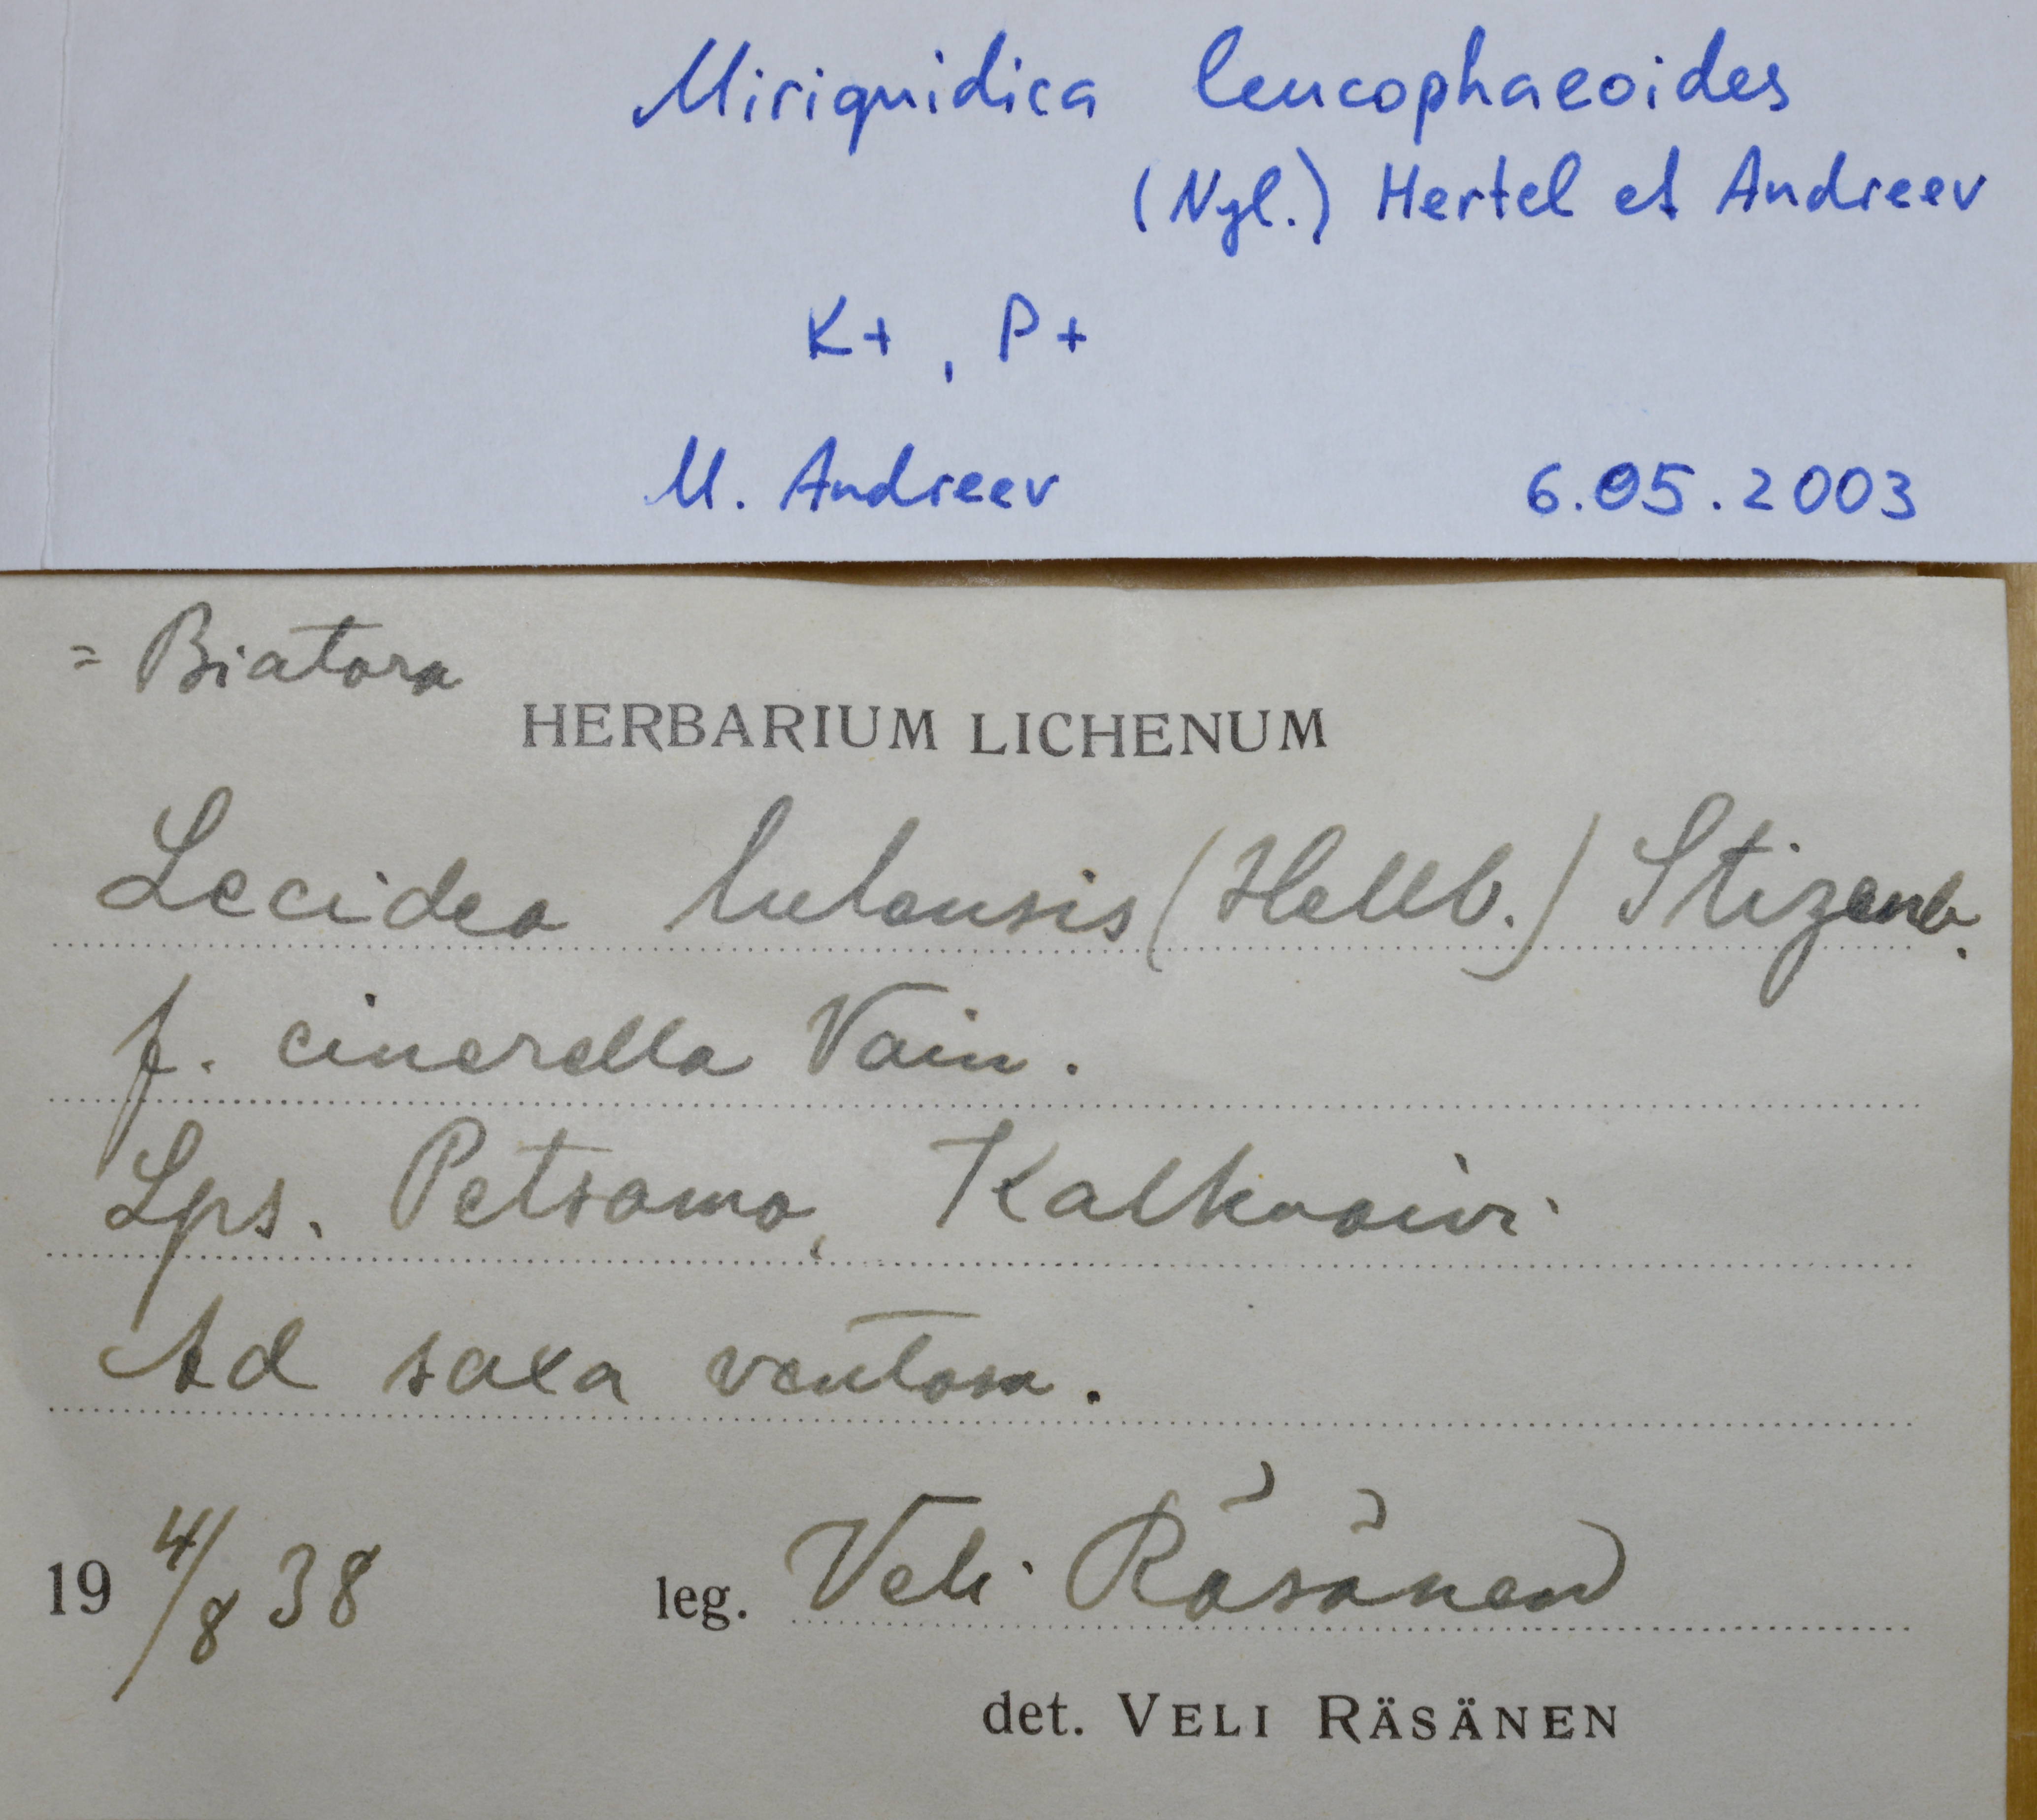 Miriquidica leucophaeoides
(Nyl.) Hertel et Andreev
K+, P+
M. Andreev 6.05.2003
= Biatora
HERBARIUM LICHENUM
Lecidea lulensis (Hellb.) Stizenb.
f. cinerella Vain.
Lps. Petsamo,
Ad saxa ventosa.
19 4/8 38 leg. Veli Räsänen
det. VELI RÄSÄNEN